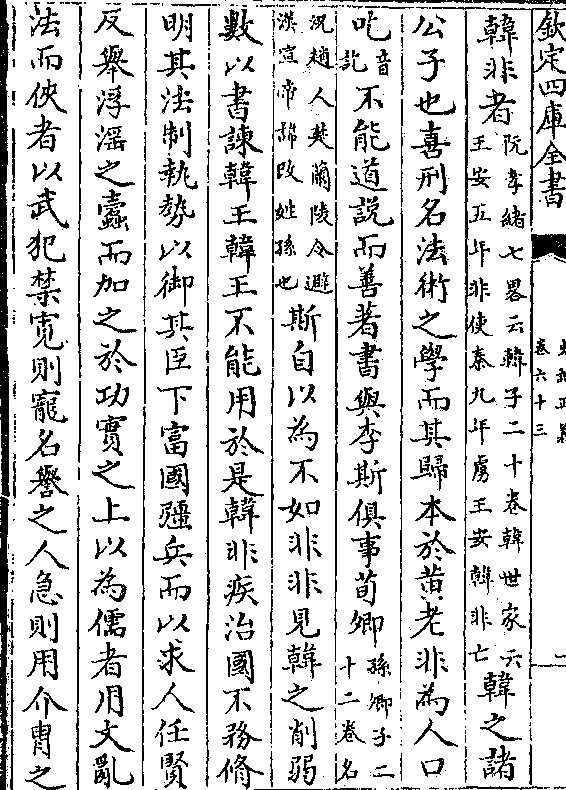 欽定四庫全書
史記正義
卷六十三
一
韓非者
阮孝緒七畧云韓子二十卷韓世家云
王安五年非使秦九年虜王安韓非亡
韓之諸
公子也喜刑名法術之學而其歸本於黄老非為人口
吃
音
訖
不能道說而善著書與李斯俱事荀卿
孫卿子二
十二卷名
況趙人楚蘭陵令避
漢宣帝諱改姓孫也
斯自以為不如非非見韓之削弱
數以書諫韓王韓王不能用於是韓非疾治國不務脩
明其法制執勢以御其臣下富國彊兵而以求人任賢
反舉浮滛之蠹而加之於功實之上以為儒者用文亂
法而俠者以武犯禁寛則寵名譽之人急則用介胄之